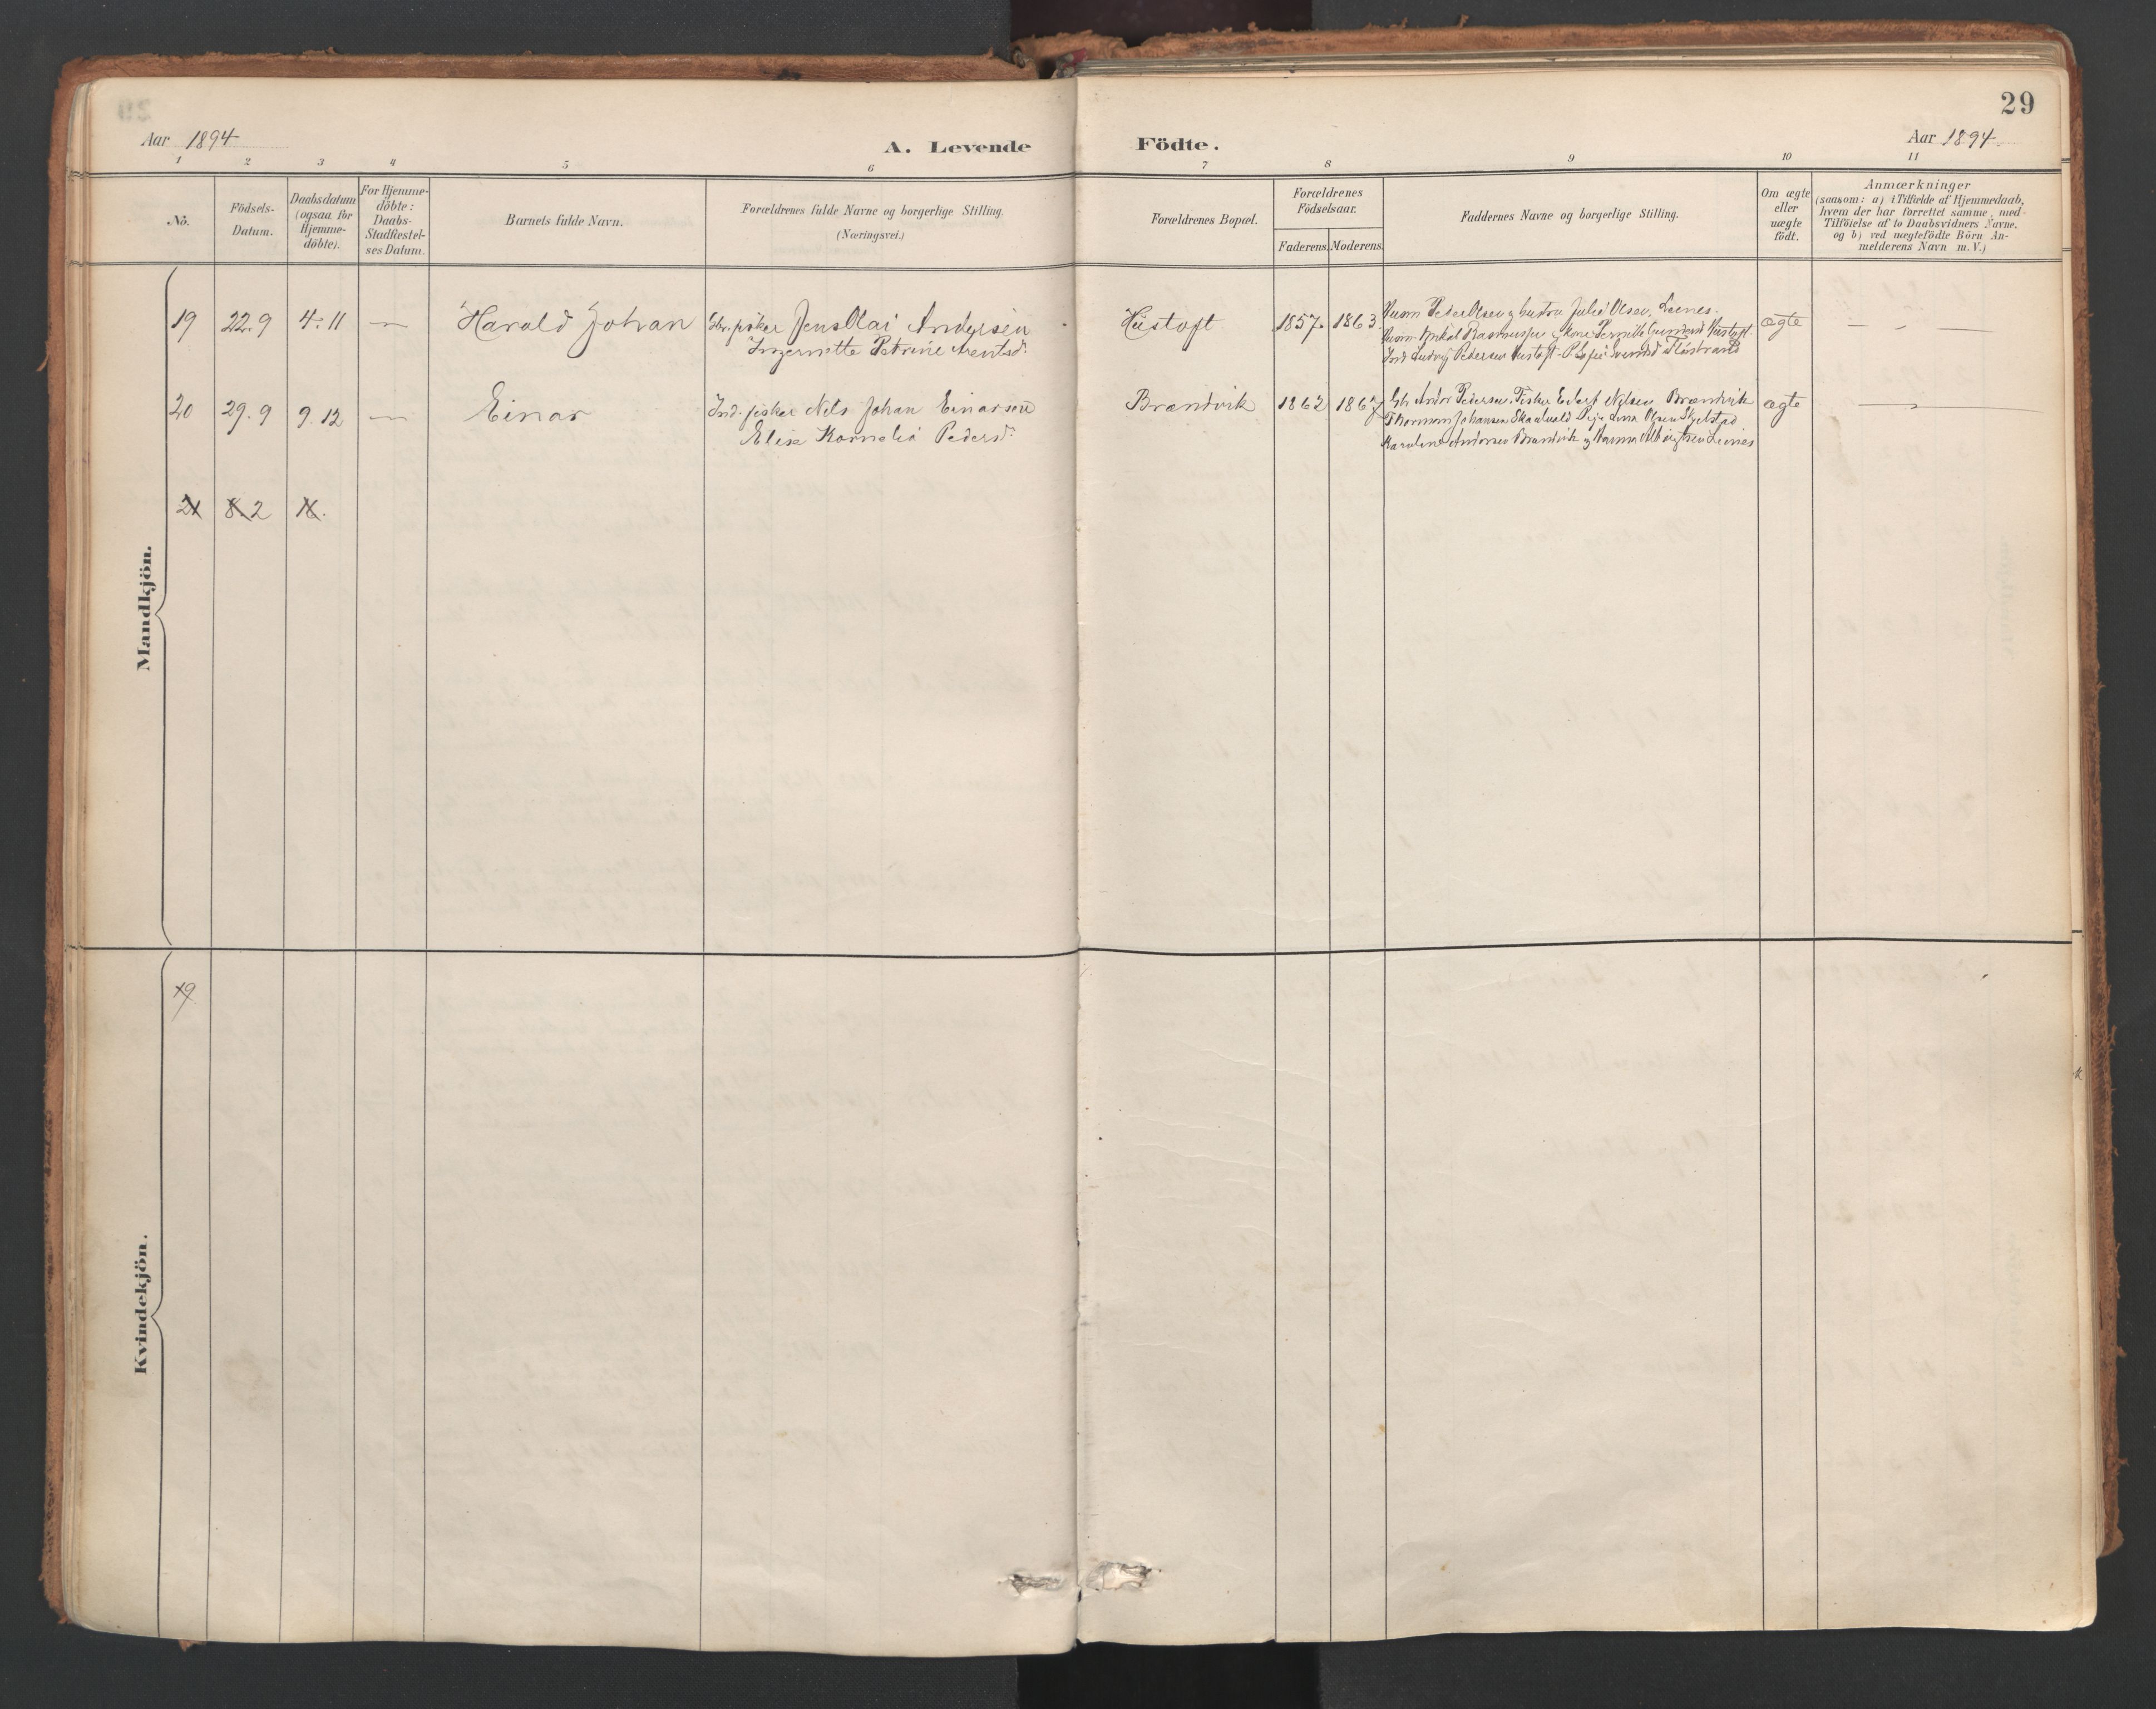 29
Aar 1894
A. Levende Födte.
Aar 1894.
1 2 3 4 5 6 7 8 9 10 11
No.
Födsels-Datum.
Daabsdatum (ogsaa for Hjemme-döbte).
For Hjemme-döbte: Daabs-Stadfæstel-ses Datum.
Barnets fulde Navn.
Forældrenes fulde Navne og borgerlige Stilling.
(Næringsvei.)
Forældrenes Bopæl.
Forældrenes Födselsaar.
Faderens. Moderens.
Faddernes Navne og borgerlige Stilling.
Om ægte eller uægte födt.
Anmærkninger
(saasom: a) i Tilfælde af Hjemmedaab,
hvem der har forrettet samme, med
Tilföielse af to Daabsvidners Navne.
og b) ved uægtefödte Börn An-
melderens Navn m. V.)
Mandkjön.
19 22.9 4.11 — Harald Johan
fisker Jens Olai Andersen
Ingernette Petrine Arentsd.
Hustoft 1857. 1863.
Husm. Peder Olsen g hustru Julie Olsen, Leenes.
Rasmussen g Kone Pernille Hustoft
Ind. Ludvig Pedersen Hustoft
ægte — „ —
20 29.9 9.12 — Einar
Ind. fisker Nels Johan Einarsen
Elise Kornelia Pedersd.
Brandvik 1862 1867
Gb. Andor Pedersen. Fisker Edvart Nilsen Brandvik
Johansen Skaalvold Pige Anna Olsen Skjelstad
Karoline Andersen Brandvik g
ægte — „ —
21 8.2 16.
Kvindekjön.
19